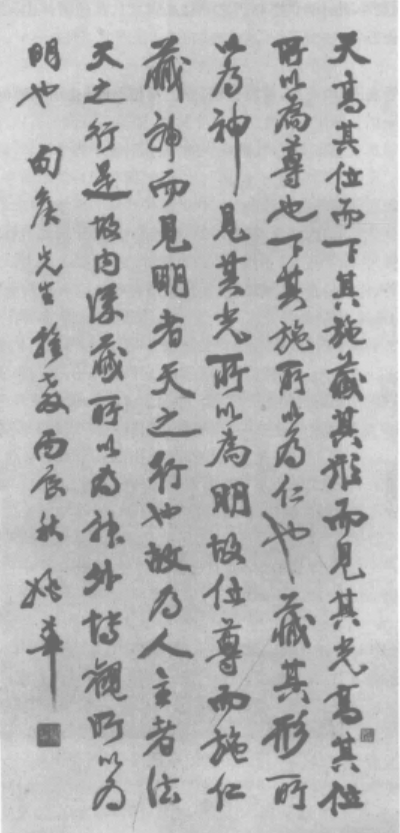 天高其位而下其施藏其形而見其光高其位
所以為尊也下其施所以為仁也藏其形所
以為神見其光所以為明故位尊而施仁
藏神而見明者天之行也故為人主者法
天之行是故内深藏所以為神外博觀所以為
明也 侯先生教丙辰秋 姚華